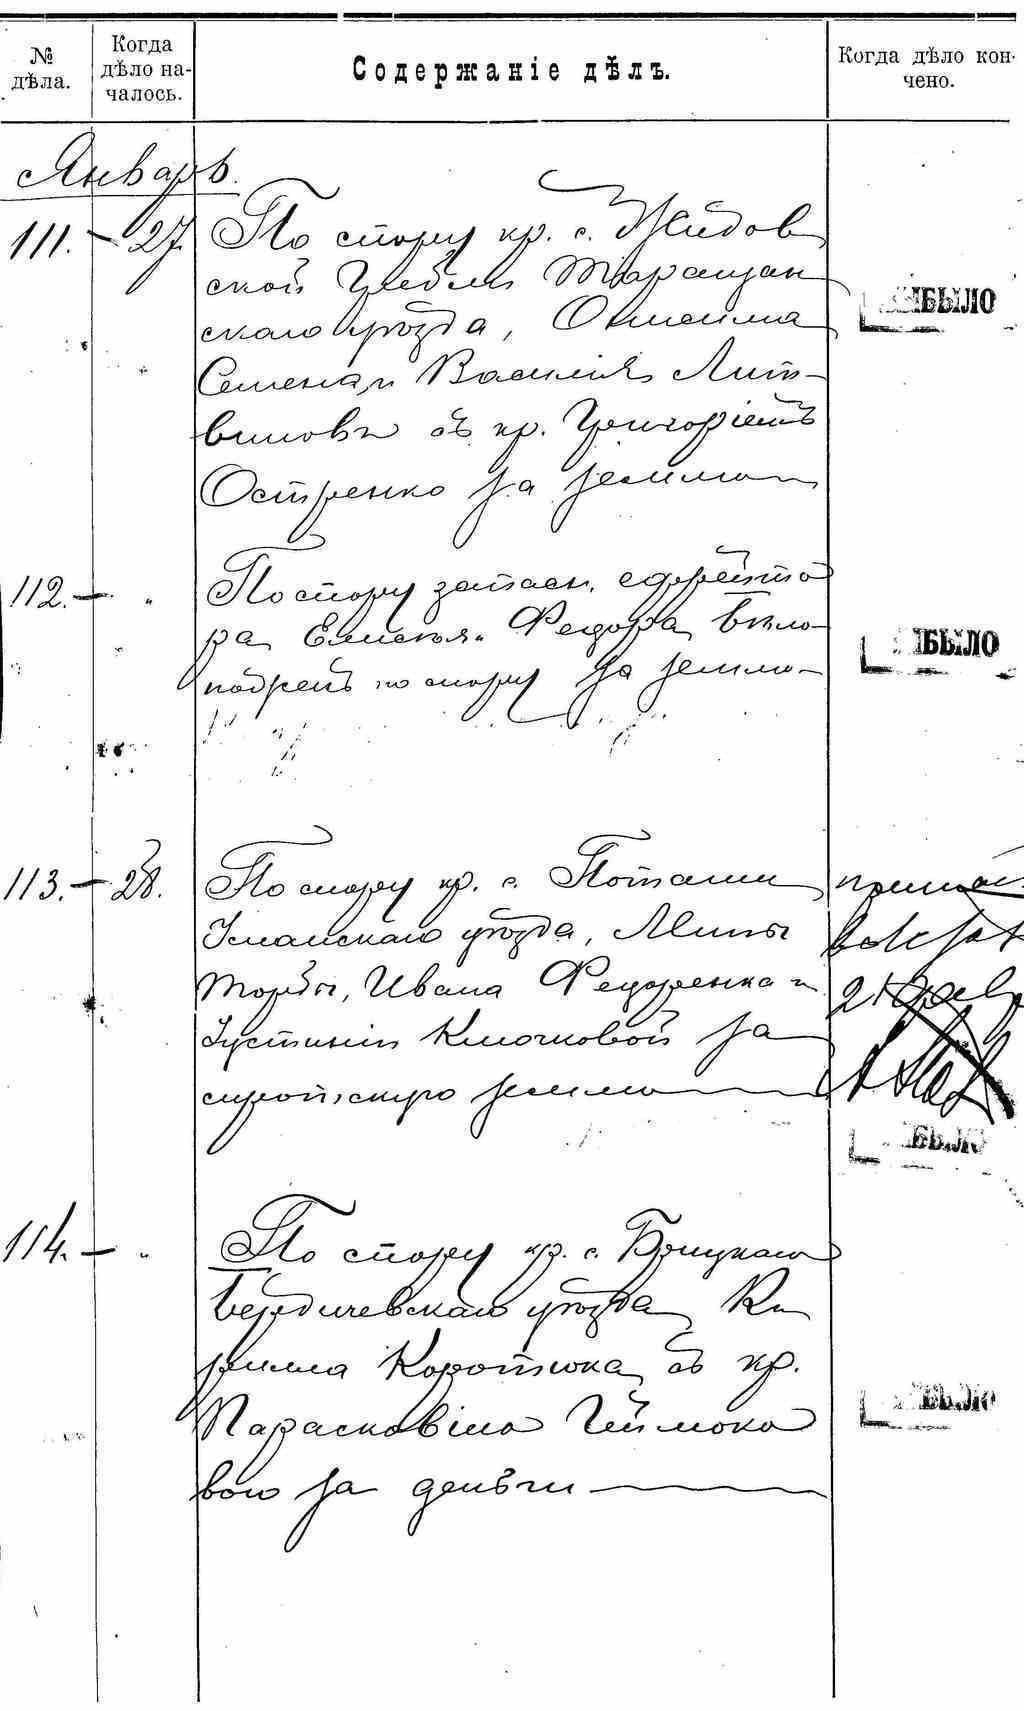 № дѣла.
Когда дѣло на-
чалось.
Содержаніе дѣлъ.
Когда дѣло кон-
чено.
Январь.
111. — 27. По спору кр. с. Жидов
ской Гребли Таращан
скаго уѣзда, Онисима
Семена, и Василія Лит-
виновы съ кр. Григоріемъ
Остренко за землю
ВЫБЫЛО
112. — „ По спору запасн. ефрейто
ра Емельяна Федора Бѣло
по спору за землю
ВЫБЫЛО
113. — 28. По спору кр. с. Поташи
Уманскаго уѣзда, Мины
Торбы, Ивана Федоренка и
Іустиніи Клочковой за
сиротскую землю
БЫЛО
114. — „ По спору кр. с. Брицкаго
Бердичевскаго уѣзда Ки
рилла Коротюка съ кр.
Парасковіею
вою за деньги
ВЫБЫЛО